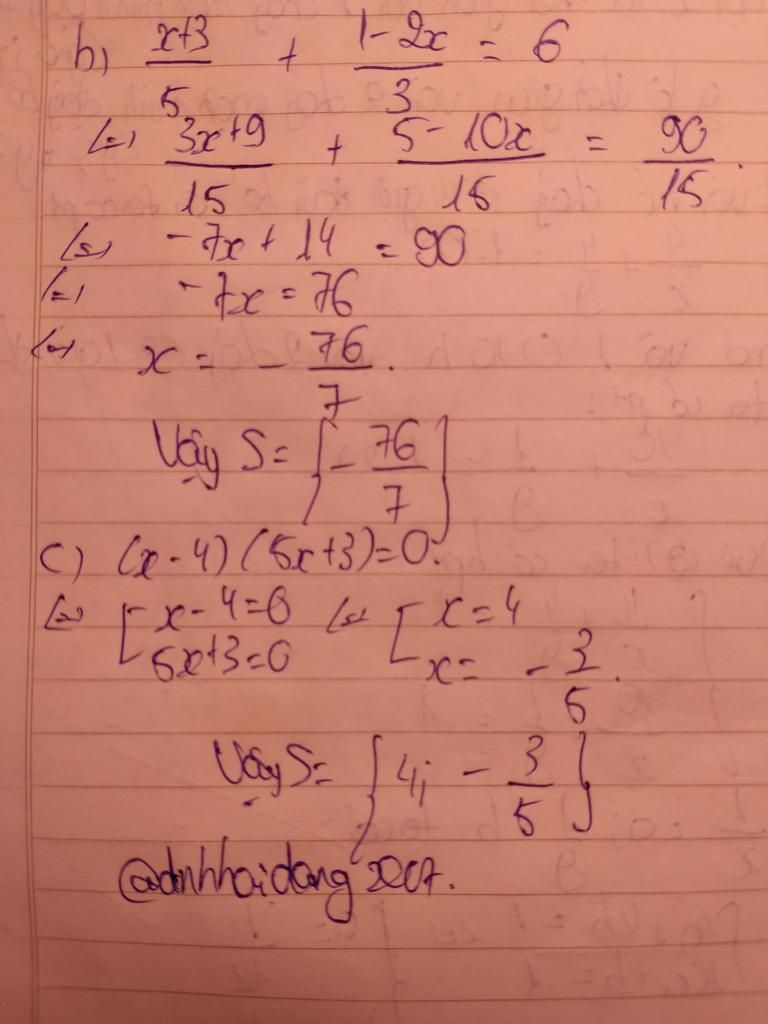 b) \frac{x+3}{5} + \frac{1-2x}{3} = 6
<=> \frac{3x+9}{15} + \frac{5-10x}{15} = \frac{90}{15}.
<=> -7x + 14 = 90
<=> -7x = 76
<=> x = -\frac{76}{7}.
Vậy S = {-\frac{76}{7}}
c) (x-4)(5x+3)=0.
<=> [ x-4=0 <=> [ x=4
5x+3=0 x= -\frac{3}{5}.
Vậy S= {4; -\frac{3}{5}}
@dnhhaidang2007.